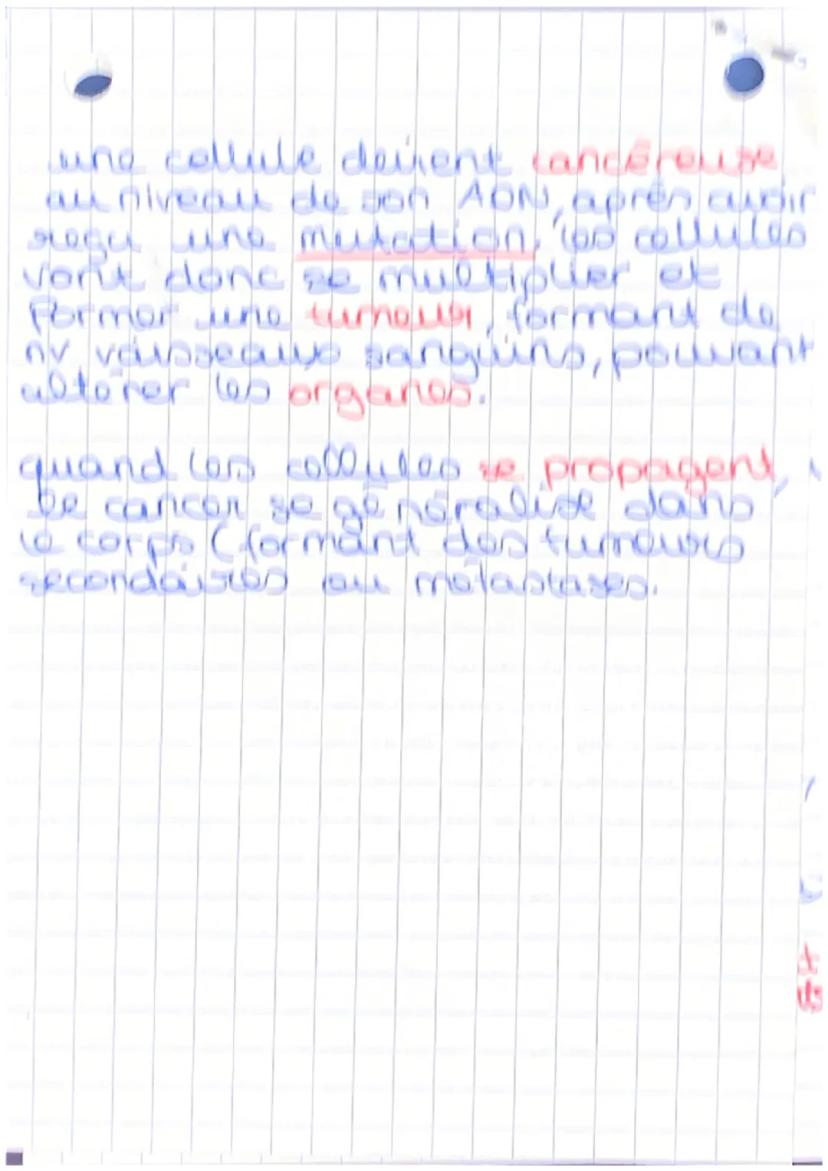 une cellule devient cancéreuse
au niveau de son ADN, après avoir
reçu une mutation. les cellules
vont donc se multiplier et
former une tumeur, formant de
nv vaisseaux sanguins, pouvant
altérer les organes.
quand les cellules se propagent,
le cancer se généralise dans
le corps (formant des tumeurs
secondaires ou métastases.